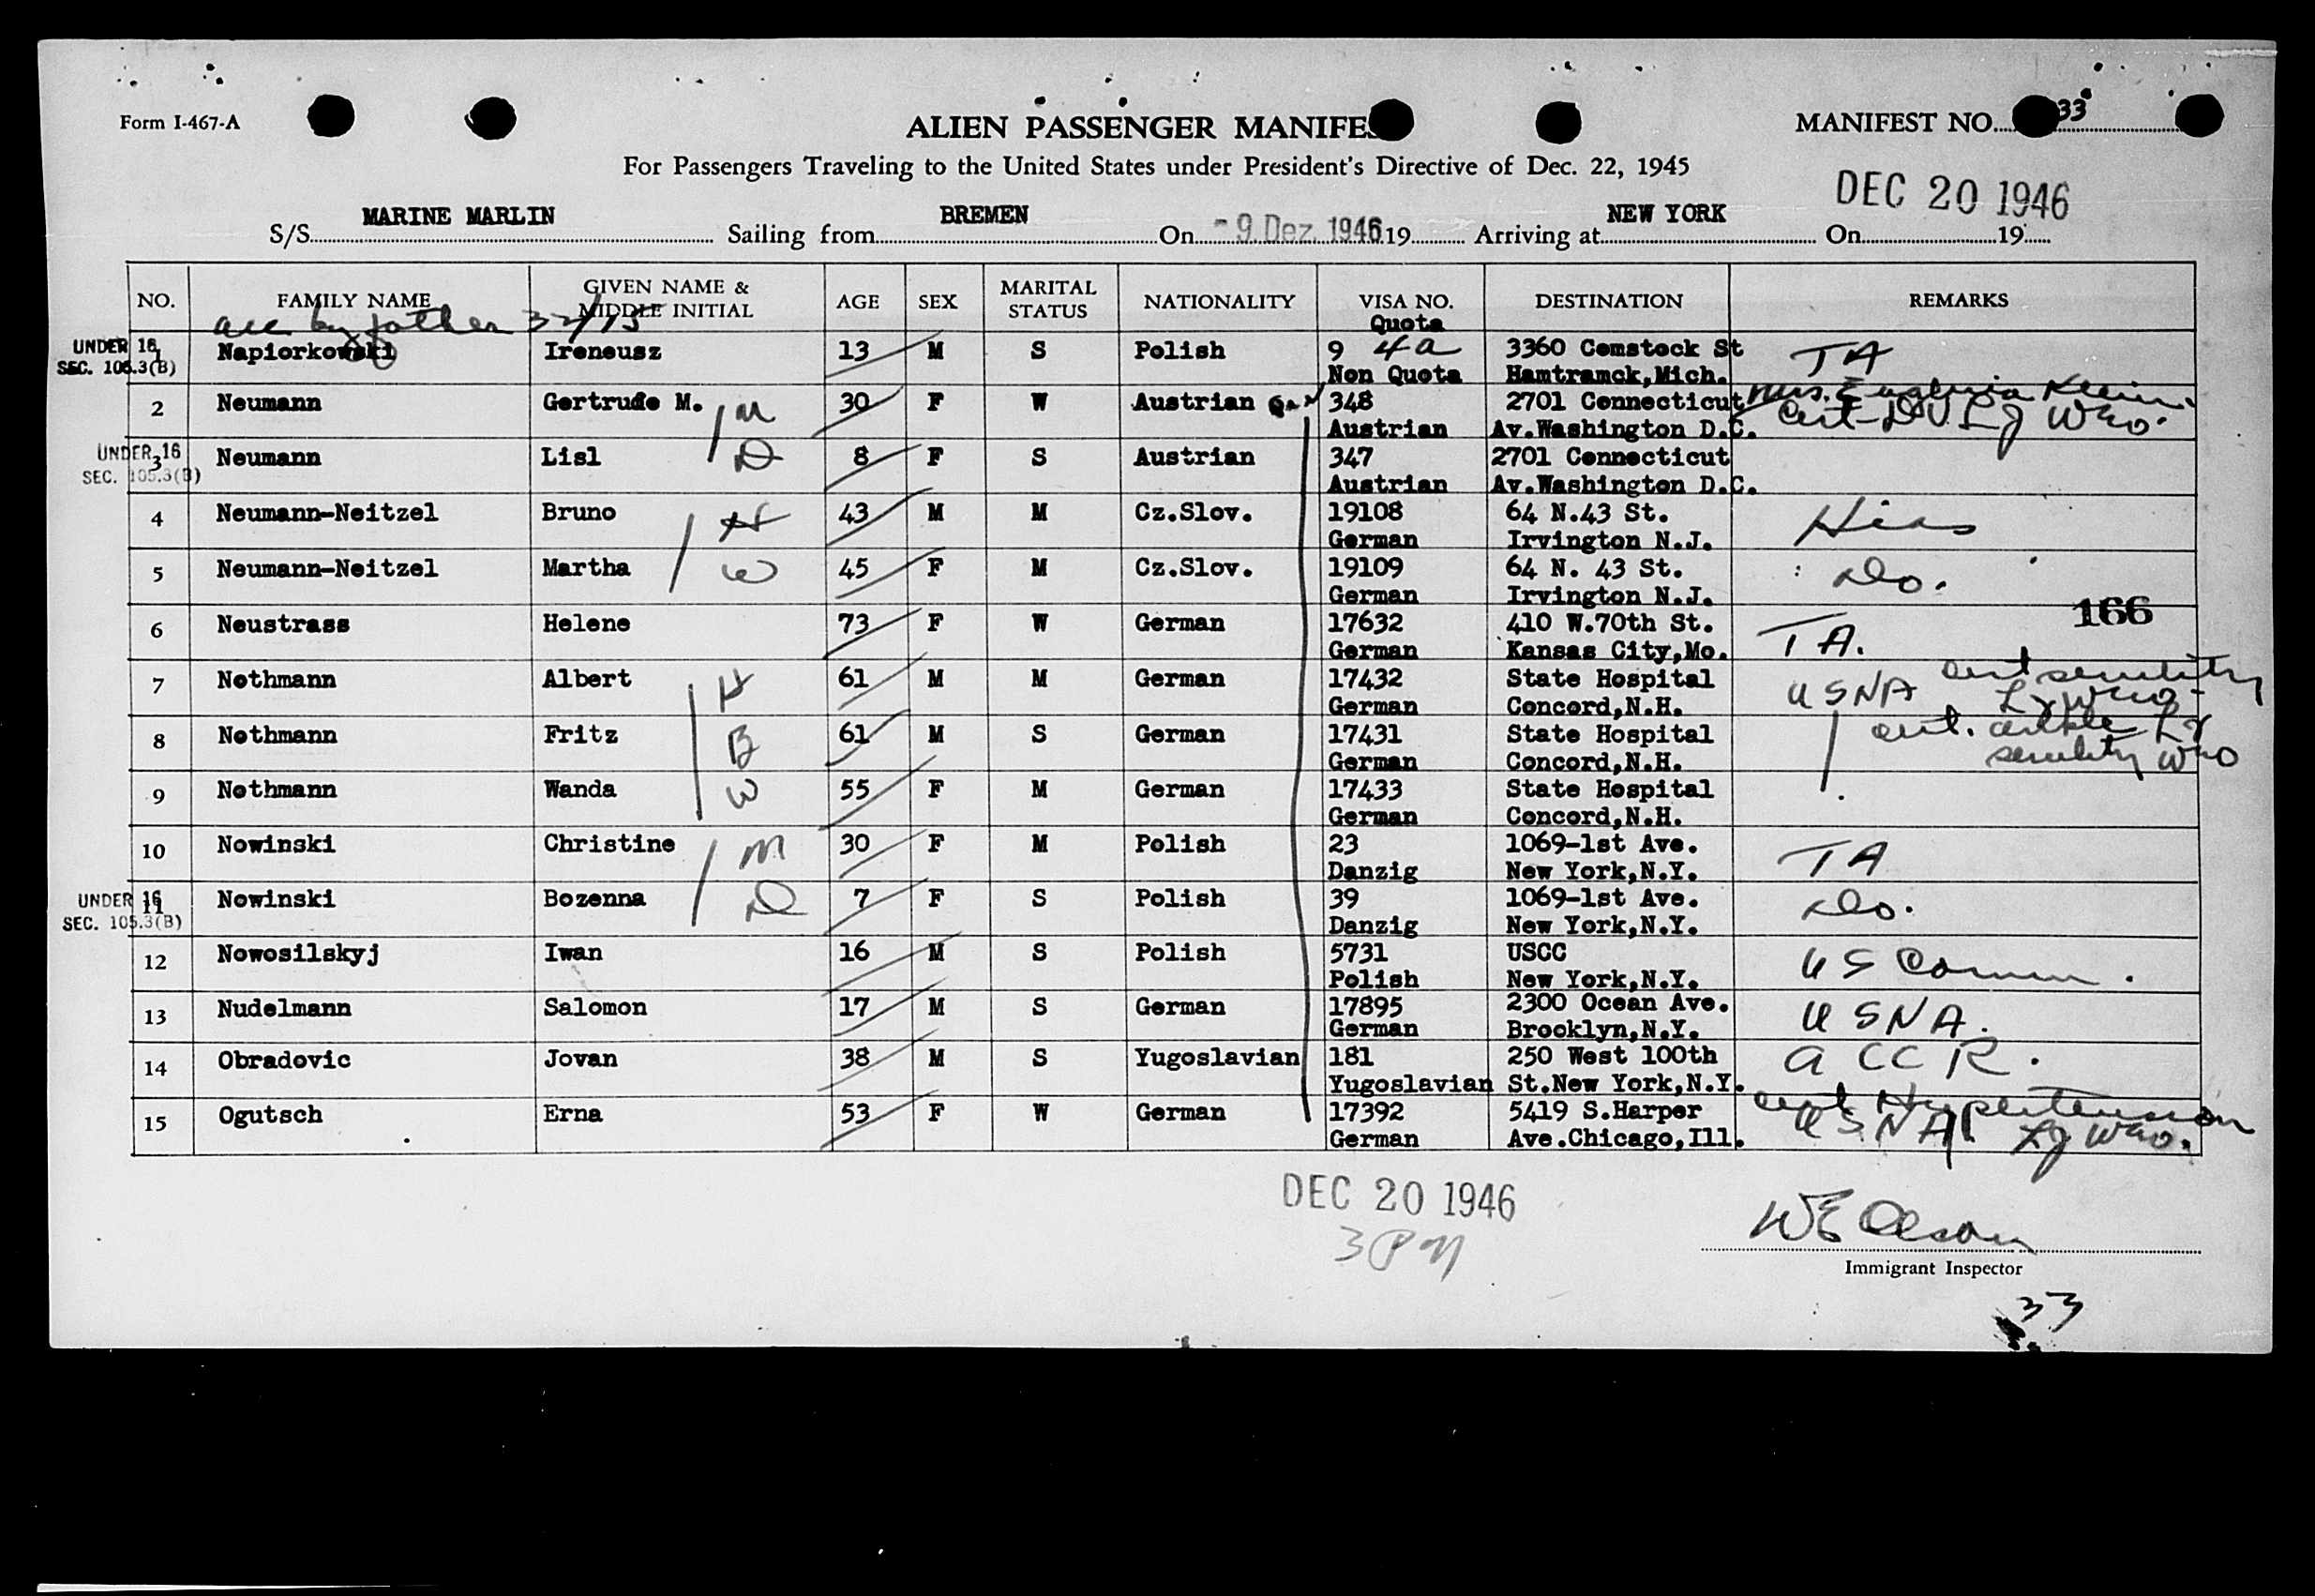 Form I-467-A
ALIEN PASSENGER MANIFES
MANIFEST NO. 33
For Passengers Traveling to the United States under President's Directive of Dec. 22, 1945
DEC 20 1946
S/S MARINE MARLIN Sailing from BREMEN On - 9. Dez. 1946 19 Arriving at NEW YORK On 19
NO. FAMILY NAME GIVEN NAME & MIDDLE INITIAL AGE SEX MARITAL STATUS NATIONALITY VISA NO. DESTINATION REMARKS
acc by father 32/15
Quota
UNDER 16 1 Napiorkowski Ireneusz 13 M S Polish 9 4a 3360 Comstock St TA
SEC. 105.3(B) Non Quota Hamtramck,Mich.
2 Neumann Gertrude M. M 30 F W Austrian 348 2701 Connecticut Mrs. Klein
Austrian Av.Washington D.C. Cert
UNDER 16 3 Neumann Lisl D 8 F S Austrian 347 2701 Connecticut
SEC. 105.3(B) Austrian Av.Washington D.C.
4 Neumann-Neitzel Bruno H 43 M M Cz.Slov. 19108 64 N.43 St. Hias
German Irvington N.J.
5 Neumann-Neitzel Martha W 45 F M Cz.Slov. 19109 64 N. 43 St. Do.
German Irvington N.J.
166
6 Neustrass Helene 73 F W German 17632 410 W.70th St. TA.
German Kansas City,Mo.
7 Nothmann Albert H 61 M M German 17432 State Hospital USNA cert senility
German Concord,N.H.
8 Nothmann Fritz B 61 M S German 17431 State Hospital cert.
German Concord,N.H. senility
9 Nothmann Wanda W 55 F M German 17433 State Hospital
German Concord,N.H.
10 Nowinski Christine M 30 F M Polish 23 1069-1st Ave. TA
Danzig New York,N.Y.
UNDER 16 11 Nowinski Bozenna D 7 F S Polish 39 1069-1st Ave. Do.
SEC. 105.3(B) Danzig New York,N.Y.
12 Nowosilskyj Iwan 16 M S Polish 5731 USCC US Comm.
Polish New York,N.Y.
13 Nudelmann Salomon 17 M S German 17895 2300 Ocean Ave. USNA.
German Brooklyn,N.Y.
14 Obradovic Jovan 38 M S Yugoslavian 181 250 West 100th ACCR.
Yugoslavian St.New York,N.Y.
15 Ogutsch Erna 53 F W German 17392 5419 S.Harper cert Hypertension
German Ave.Chicago,Ill. USNA
DEC 20 1946
3 PM
W E Olson
Immigrant Inspector
33